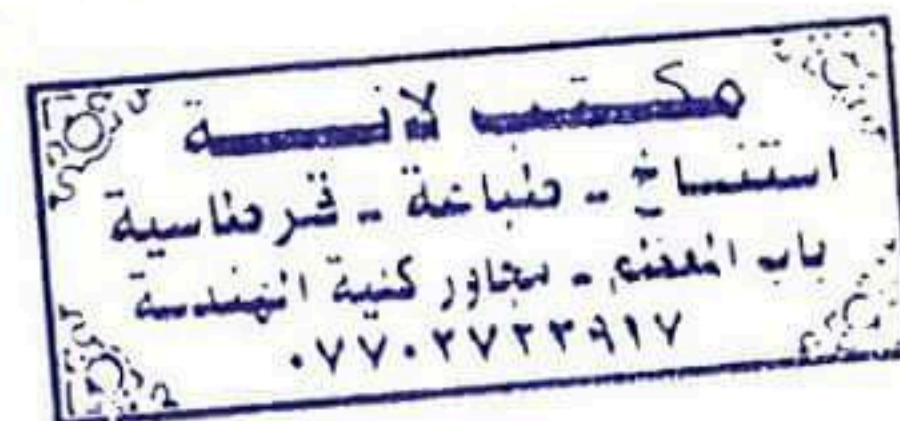 مكتب لانة
استنساخ - طباعة - قرطاسية
باب المعظم - مجاور كلية الهندسة
٠٧٧٠٢٧٣٣٩١٧